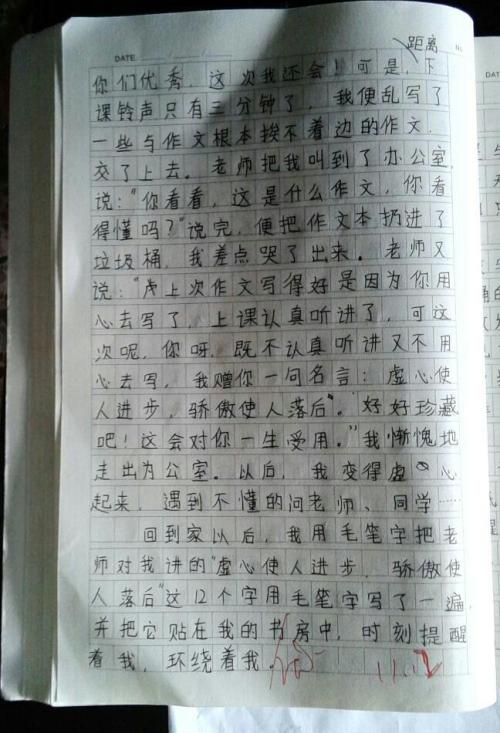 距离
DATE
你们优秀，这次我还会！可是，下
课铃声只有三分钟了，我便乱写了
一些与作文根本挨不着边的作文，
交了上去。老师把我叫到了办公室，
说："你看看，这是什么作文，你看
得懂吗？"说完，便把作文本扔进了
垃圾桶，我差点哭了出来。老师又
说："上次作文写得好是因为你用
心去写了，上课认真听讲了，可这
次呢，你呀，既不认真听讲又不用
心去写，我赠你一句名言：虚心使
人进步，骄傲使人落后"。好好珍藏
吧！这会对你一生受用。"我惭愧地
走出为公室。以后，我变得虚心
起来，遇到不懂的问老师、同学……
回到家以后，我用毛笔字把老
师对我讲的"虚心使人进步，骄傲使
人落后"这12个字用毛笔字写了一遍，
并把它贴在我的书房中，时刻提醒
着我，环绕着我。
11.12